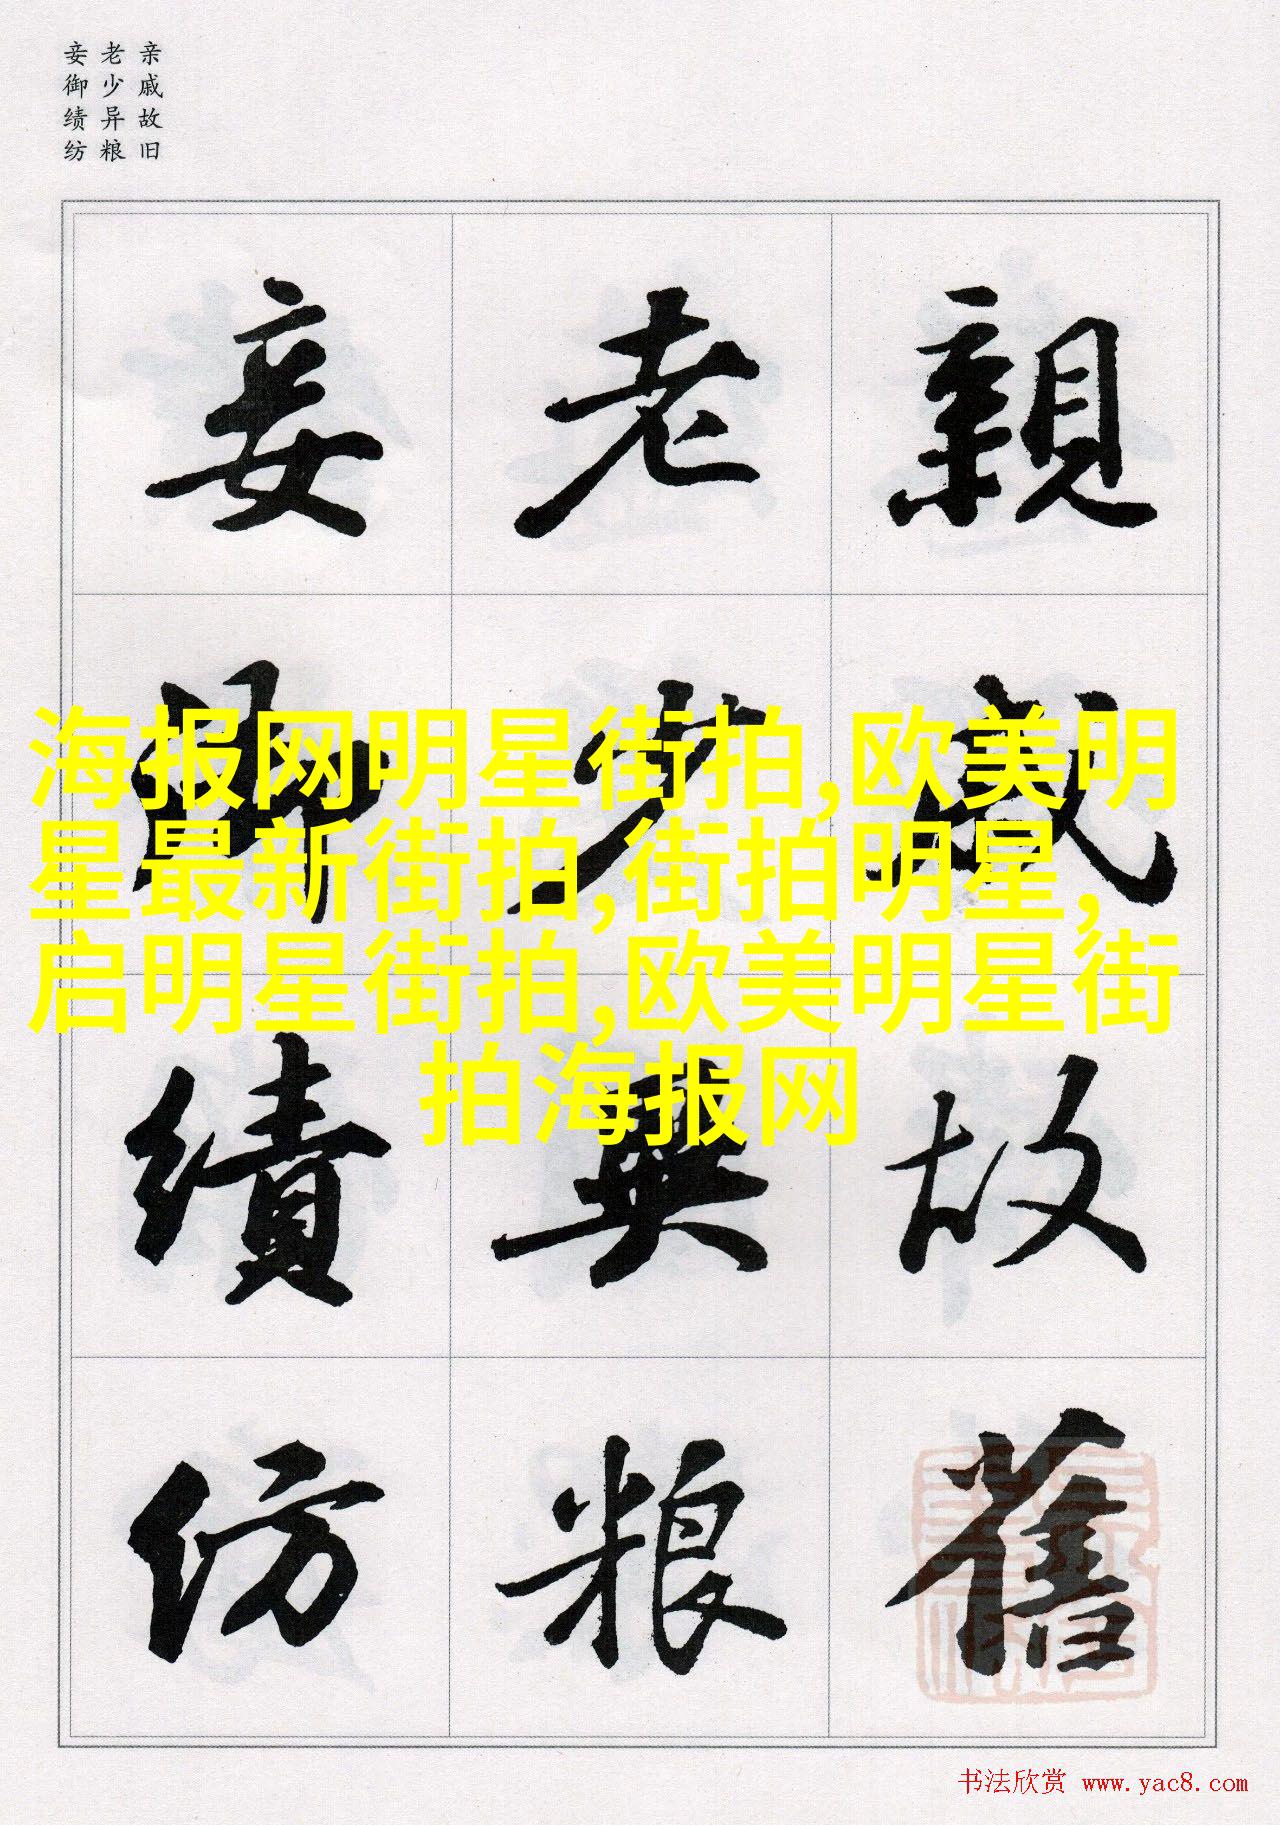 亲戚故旧
老少异粮
妾御绩纺
親戚故舊
老少異粮
妾御績纺
海报网明星街拍,欧美明
星最新街拍,街拍明星,
启明星街拍,欧美明星街
拍海报网
书法欣赏 www.yac8.com